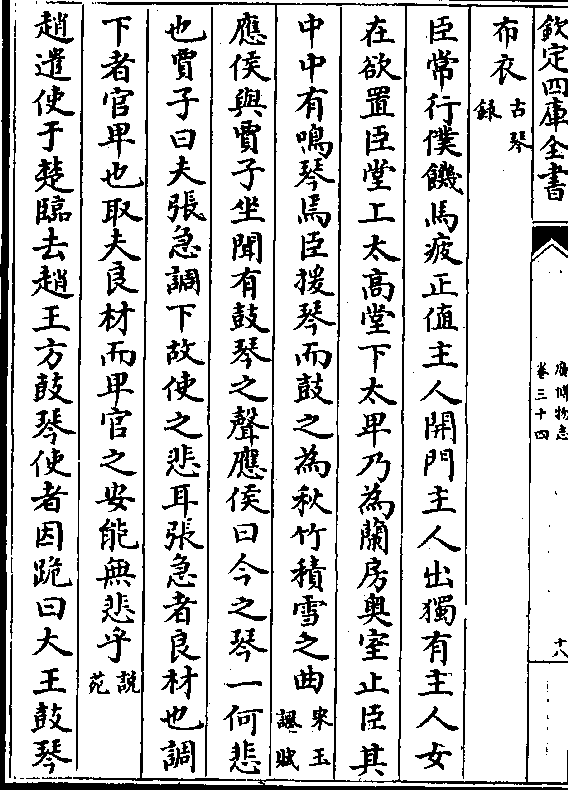 欽定四庫全書
廣博物志
卷三十四
十八
布衣古琴錄
臣常行僕饑馬疲正值主人開門主人出獨有主人女
在欲置臣堂上太高堂下太卑乃為蘭房奥室止臣其
中中有鳴琴焉臣援琴而鼓之為秋竹積雪之曲宋玉諷賦
應侯與賈子坐聞有鼓琴之聲應侯曰今之琴一何悲
也賈子曰夫張急調下故使之悲耳張急者良材也調
下者官卑也取夫良材而卑官之安能無悲乎說苑
趙遣使于楚臨去趙王方鼓琴使者因跪曰大王鼓琴